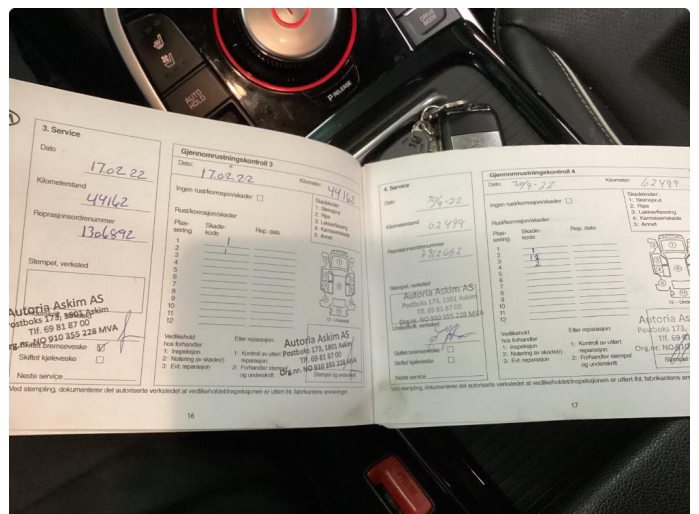 DRIVE MODE
AUTO HOLD
P RELEASE
3. Service
Dato
17.02.22
Kilometerstand
44162
Reprasjonsordrenummer
1306892
Stempel, verksted
Autoria Askim AS
Postboks 173, 1801 Askim
Tlf. 69 81 87 00
Org.nr. NO 910 355 228 MVA
Skiftet bremsevæske
Skiftet kjølevæske
Neste service
Gjennomrustningskontroll 3
Dato: 17.02.22
Kilometer: 44162
Ingen rust/korrosjon/skader
Rust/korrosjon/skader
Skadekoder:
1: Steinsprut
2: Ripe
3: Lakkavflassing
4: Karosseriskade
5: Annet
Plas-
sering
Skade-
kode
Rep. dato
1
2
3
4
5
6
7
8
9
10
11
12
12 - Underst
Vedlikehold
hos forhandler
1: Inspeksjon
2: Notering av skade(r)
3: Evt. reparasjon
Etter reparasjon:
1: Kontroll av utført
reparasjon
2: Forhandler stempel
og underskrift
Autoria Askim AS
Postboks 173, 1801 Askim
Tlf. 69 81 87 00
Org.nr. NO 910 355 228 MVA
Stempel og underskrift
Ved stempling, dokumenterer det autoriserte verkstedet at vedlikeholdet/inspeksjonen er utført iht. fabrikantens anvisninger
16
4. Service
Dato
Kilometerstand
62499
Reprasjonsordrenummer
Stempel, verksted
Autoria Askim AS
Postboks 173, 1801 Askim
Tlf. 69 81 87 00
Org.nr. NO 910 355 228 MVA
Underskrift, verksted
Skiftet bremsevæske
Skiftet kjølevæske
Neste service
Gjennomrustningskontroll 4
Dato:
Kilometer: 62499
Ingen rust/korrosjon/skader
Rust/korrosjon/skader
Skadekoder:
1: Steinsprut
2: Ripe
3: Lakkavflassing
4: Karosseriskade
5: Annet
Plas-
sering
Skade-
kode
Rep. dato
1
2
3
4
5
6
7
8
9
10
11
12
12 - Underst
Vedlikehold
hos forhandler
1: Inspeksjon
2: Notering av skade(r)
3: Evt. reparasjon
Etter reparasjon:
1: Kontroll av utført
reparasjon
2: Forhandler stempel
og underskrift
Autoria As
Postboks 173
Tlf. 69 8
Org.nr. NO 910
Ved stempling, dokumenterer det autoriserte verkstedet at vedlikeholdet/inspeksjonen er utført iht. fabrikantens anvis
17
PRESS